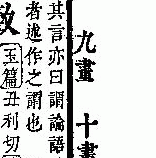 九畫 十畫
其言亦曰謂論語
者述作之謂也
玉篇丑利切